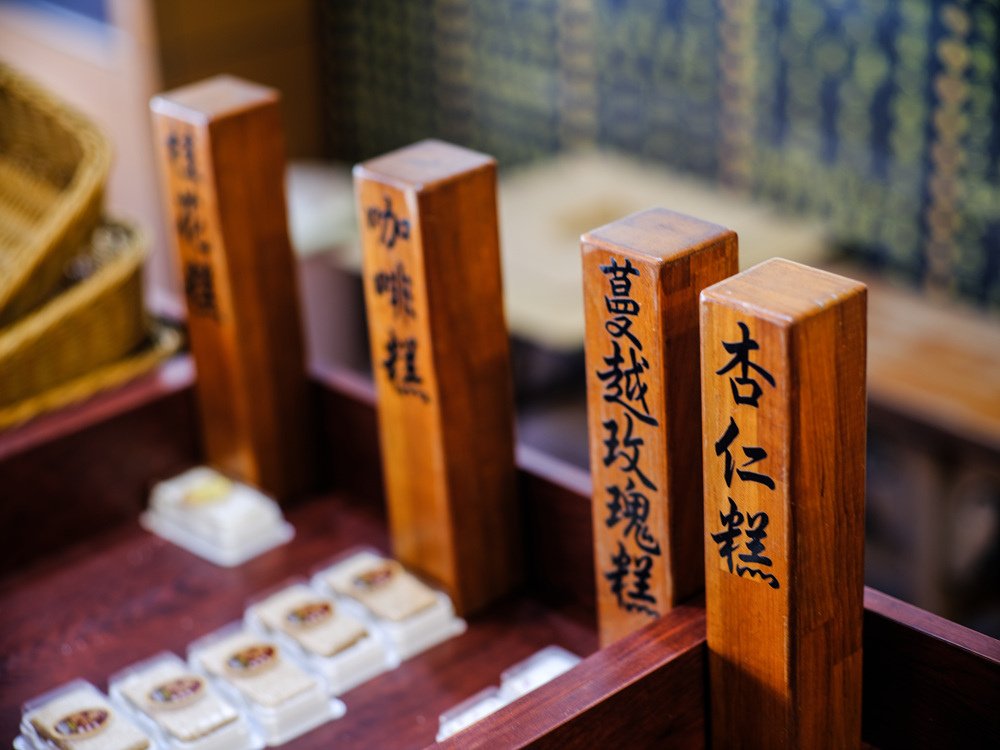 桂花糕
咖啡糕
蔓越玫瑰糕
杏仁糕